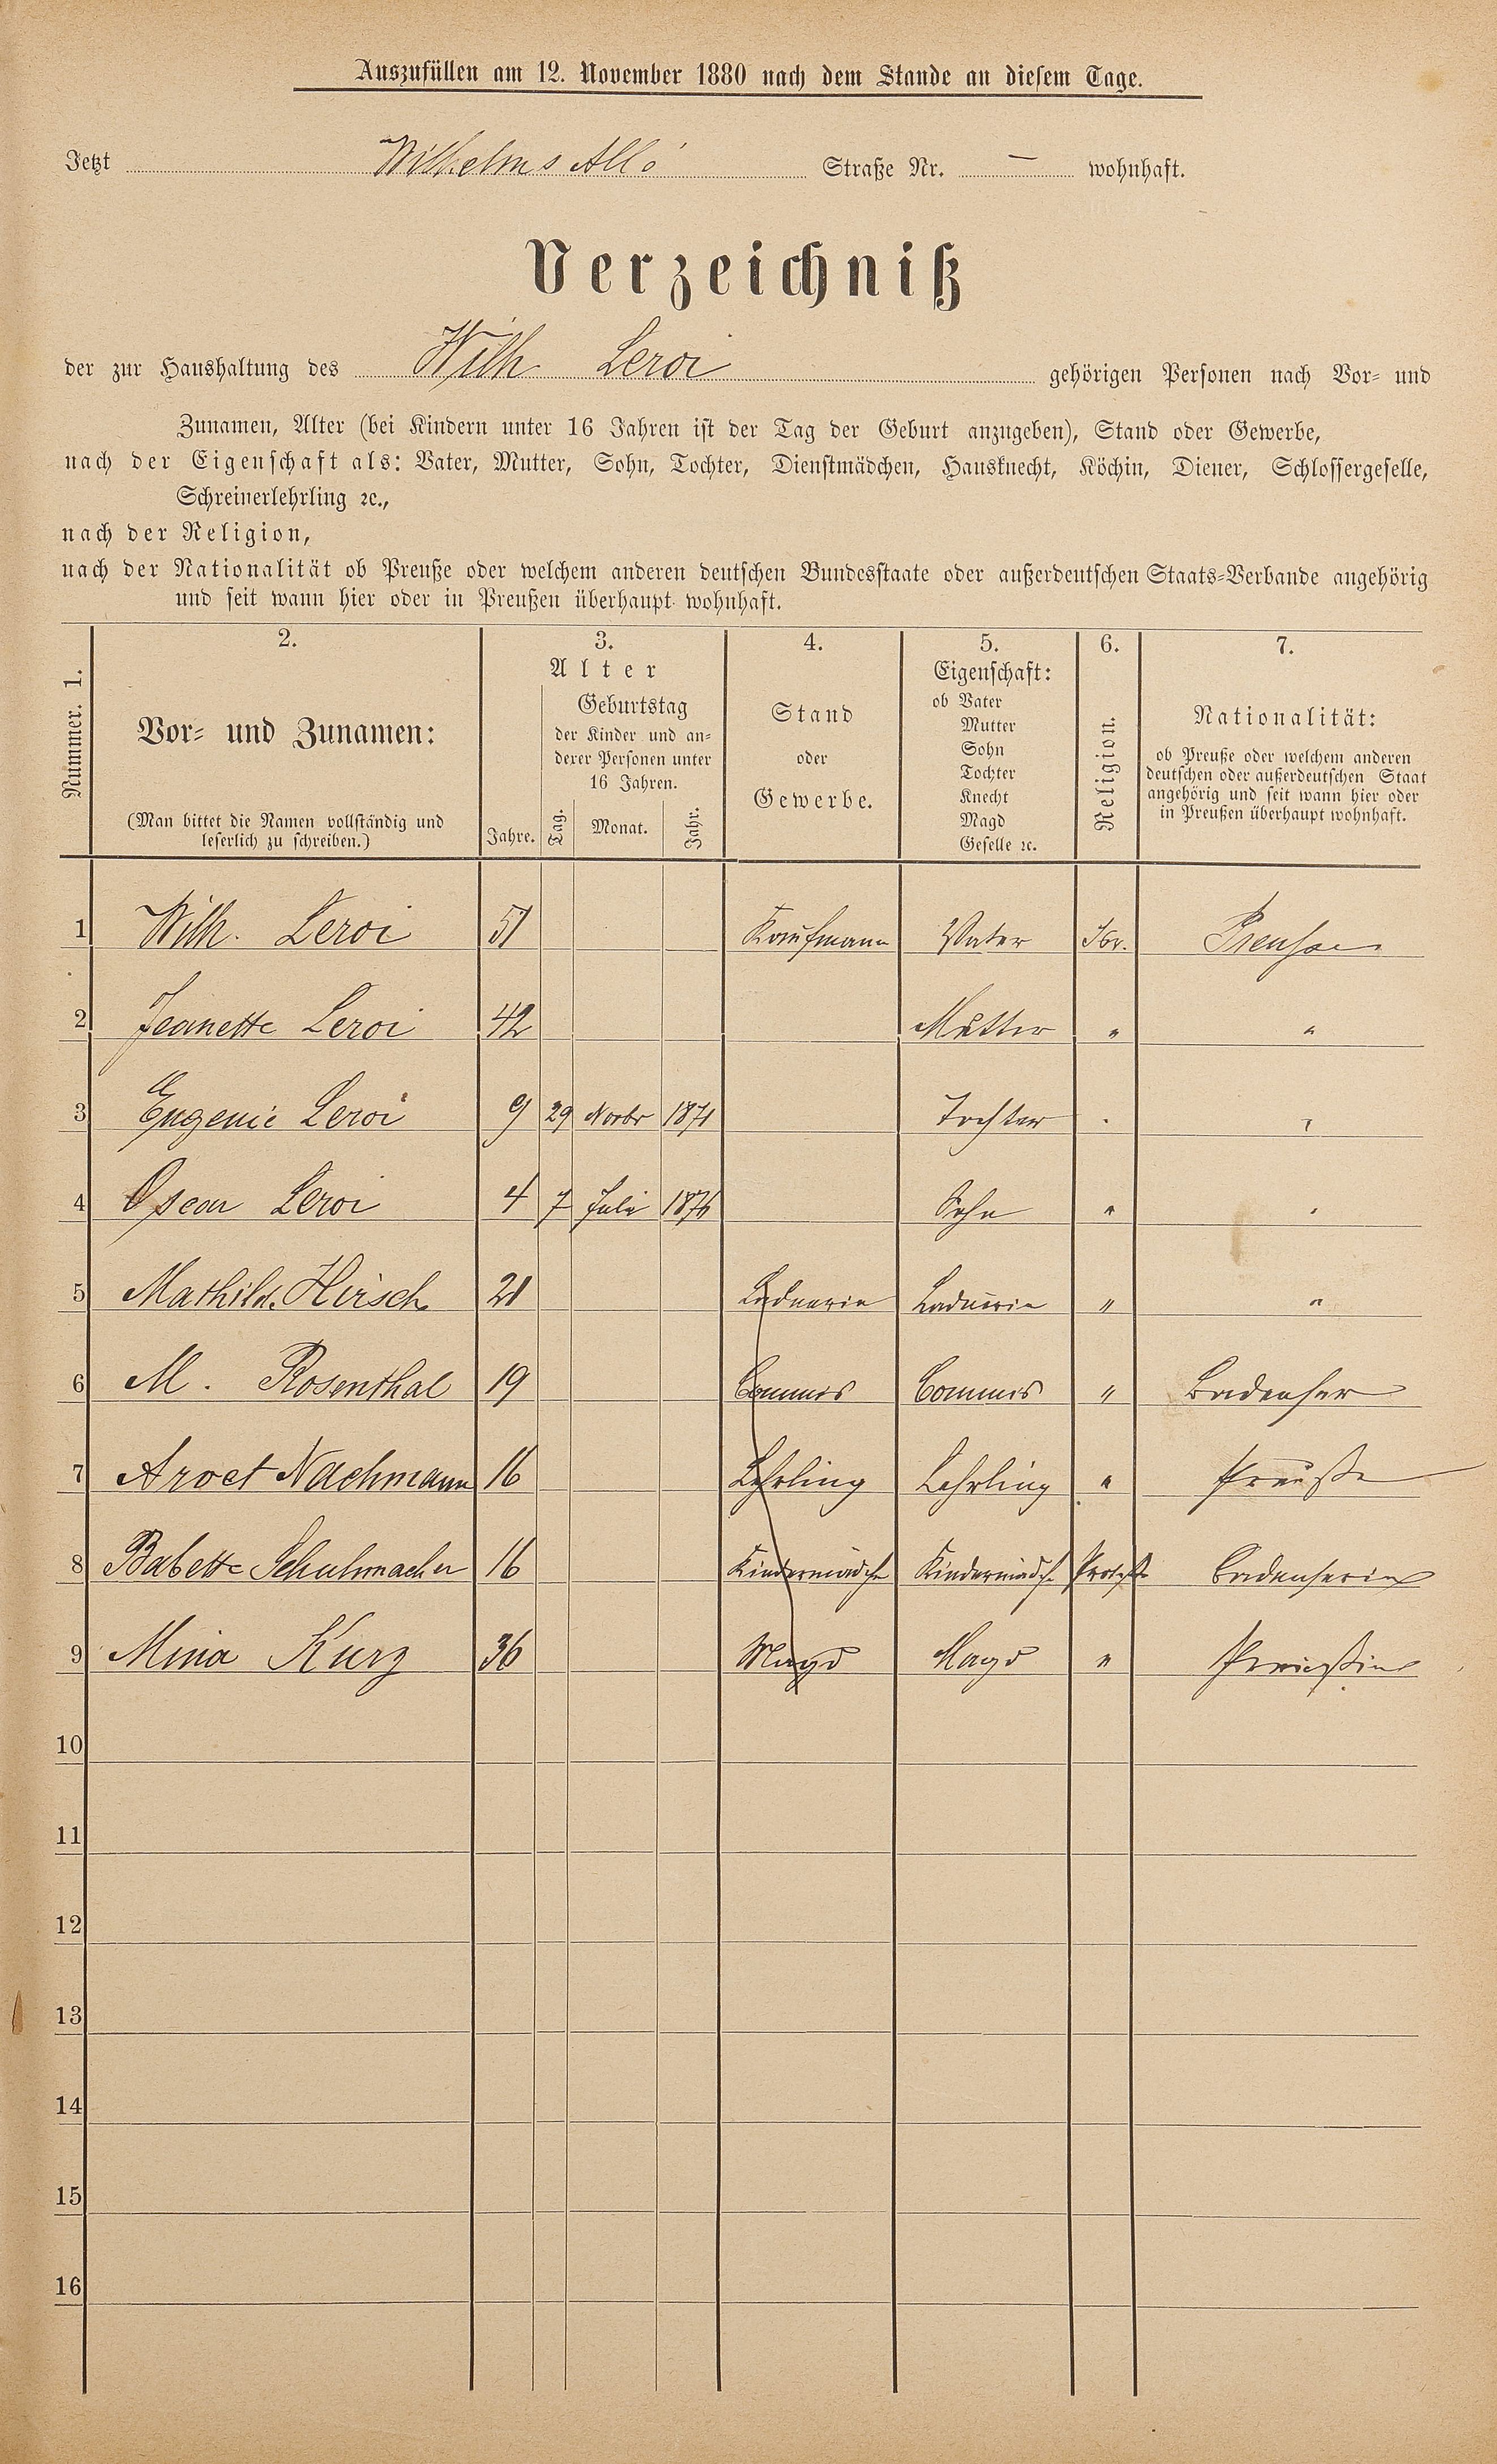 Auszufüllen am 12. November 1880 nach dem Stande an diesem Tage.
Jetzt Wilhelms Allé Straße Nr. — wohnhaft.
Verzeichniß
der zur Haushaltung des Wilh. Leroi gehörigen Personen nach Vor- und
Zunamen, Alter (bei Kindern unter 16 Jahren ist der Tag der Geburt anzugeben), Stand oder Gewerbe,
nach der Eigenschaft als: Vater, Mutter, Sohn, Tochter, Dienstmädchen, Hausknecht, Köchin, Diener, Schlossergeselle,
Schreinerlehrling ꝛc.,
nach der Religion,
nach der Nationalität ob Preuße oder welchem anderen deutschen Bundesstaate oder außerdeutschen Staats-Verbande angehörig
und seit wann hier oder in Preußen überhaupt wohnhaft.
Nummer. 1.
2.
Vor- und Zunamen:
(Man bittet die Namen vollständig und
leserlich zu schreiben.)
3.
Alter
Jahre.
Geburtstag
der Kinder und an-
derer Personen unter
16 Jahren.
Tag. Monat. Jahr.
4.
Stand
oder
Gewerbe.
5.
Eigenschaft:
ob Vater
Mutter
Sohn
Tochter
Knecht
Magd
Geselle ꝛc.
6.
Religion.
7.
Nationalität:
ob Preuße oder welchem anderen
deutschen oder außerdeutschen Staat
angehörig und seit wann hier oder
in Preußen überhaupt wohnhaft.
1 Wilh. Leroi 51 Kaufmann Vater Isr. Preusse
2 Jeanette Leroi 42 Mutter " "
3 Eugenie Leroi 9 29 Novbr 1871 Tochter " "
4 Oscar Leroi 4 7 Juli 1876 Sohn " "
5 Mathild. Hirsch 21 Ladnerin Ladnerin " "
6 M. Rosenthal 19 Commis Commis " Badenser
7 Nachmann 16 Lehrling Lehrling " Preuße
8 Babette Schuhmacher 16 Kindermädch Kindermädch Protest Badenserin
9 Mina Kurz 36 Magd Magd " Preußin
10
11
12
13
14
15
16